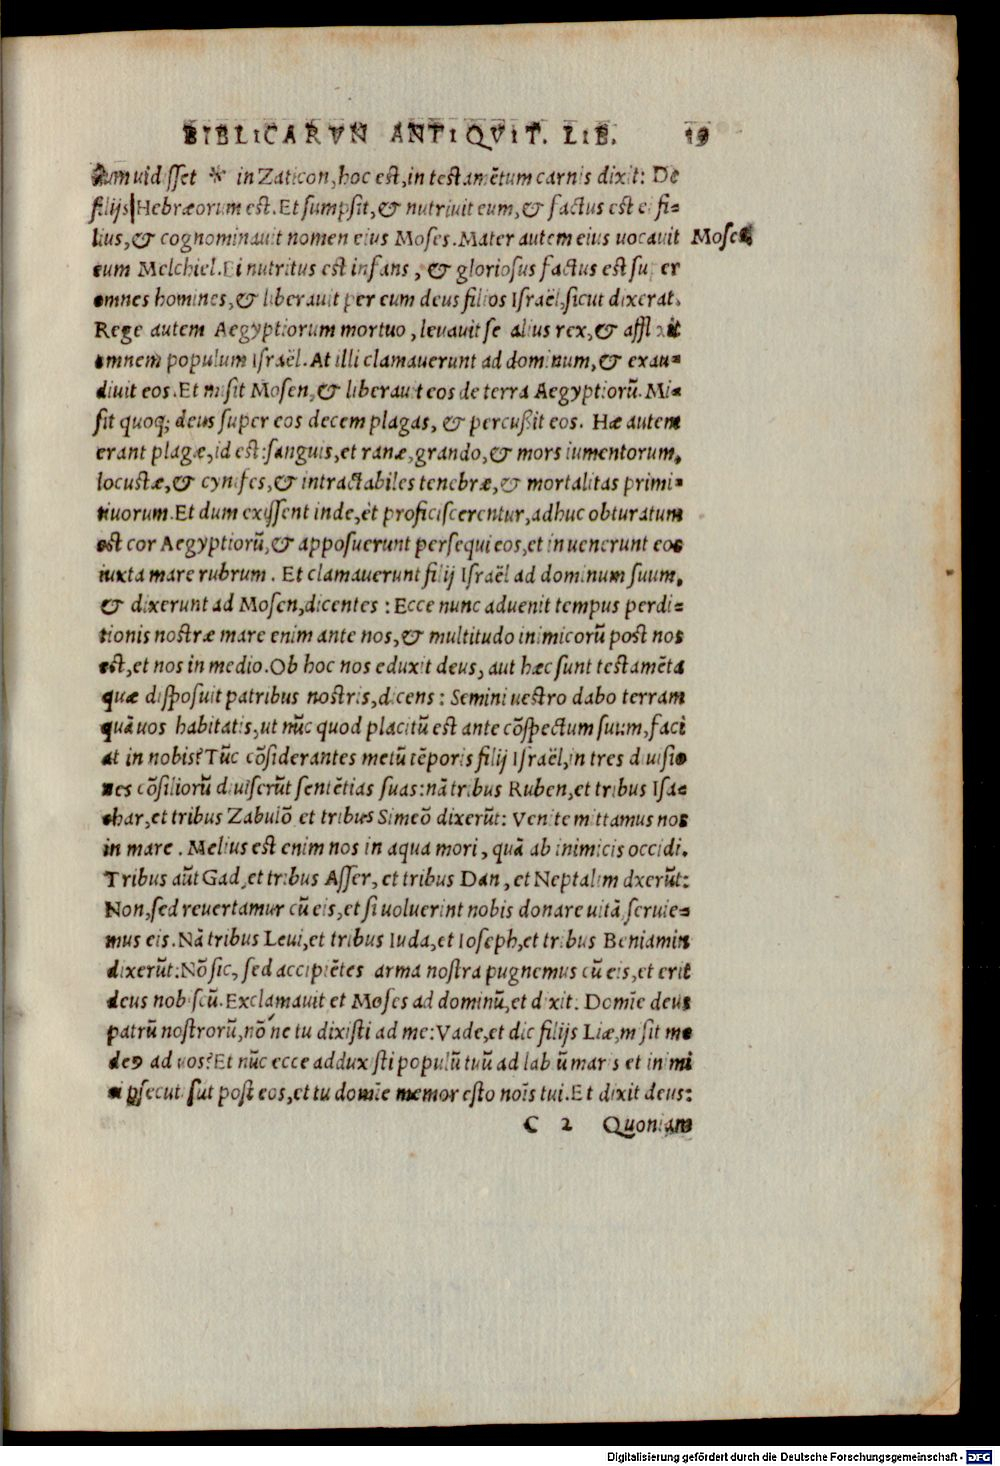 BIBLICARVN ANTIQVIT. LIB. 19
cum uidisset * in Zaticon, hoc est, in testamētum carnis dixit: De
filijs Hebræorum est. Et sumpsit, & nutriuit eum, & factus est ei fi-
lius, & cognominauit nomen eius Moses. Mater autem eius uocauit Moses
eum Melchiel. Ei nutritus est infans, & gloriosus factus est super
omnes homines, & liberauit per eum deus filios Israël, sicut dixerat.
Rege autem Aegyptiorum mortuo, leuauit se alius rex, & afflixit
omnem populum Israël. At illi clamauerunt ad dominum, & exau-
diuit eos. Et misit Mosen, & liberauit eos de terra Aegyptiorū. Mi-
sit quoq; deus super eos decem plagas, & percußit eos. Hæ autem
erant plagæ, id est: sanguis, et ranæ, grando, & mors iumentorum,
locustæ, & cynifes, & intractabiles tenebræ, & mortalitas primi-
tiuorum. Et dum exissent inde, et proficiscerentur, adhuc obturatum
est cor Aegyptiorū, & apposuerunt persequi eos, et inuenerunt eos
iuxta mare rubrum. Et clamauerunt filij Israël ad dominum suum,
& dixerunt ad Mosen, dicentes: Ecce nunc aduenit tempus perdi-
tionis nostræ mare enim ante nos, & multitudo inimicorū post nos
est, et nos in medio. Ob hoc nos eduxit deus, aut hæc sunt testamēta
quæ disposuit patribus nostris, dicens: Semini uestro dabo terram
quā uos habitatis, ut nūc quod placitū est ante cōspectum suum, faci
at in nobis? Tūc cōsiderantes metū tēporis filij Israël, in tres diuisio
nes cōsiliorū diuiserūt sentētias suas: nā tribus Ruben, et tribus Isa-
char, et tribus Zabulō et tribus Simeō dixerūt: Venite mittamus nos
in mare. Melius est enim nos in aqua mori, quā ab inimicis occidi.
Tribus aūt Gad, et tribus Asser, et tribus Dan, et Neptalim dxerūt:
Non, sed reuertamur cū eis, et si uoluerint nobis donare uitā seruie-
mus eis. Nā tribus Leui, et tribus Iuda, et Ioseph, et tribus Beniamin
dixerūt: Nō sic, sed accipiētes arma nostra pugnemus cū eis, et erit
deus nobiscū. Exclamauit et Moses ad dominū, et dixit: Domīe deus
patrū nostrorū, nō ne tu dixisti ad me: Vade, et dic filijs Liæ, misit me
de9 ad uos? Et nūc ecce adduxisti populū tuū ad labiū maris et inimi
ci ꝑsecuti sūt post eos, et tu domīe memor esto noīs tui. Et dixit deus:
C 2 Quoniam
Digitalisierung gefördert durch die Deutsche Forschungsgemeinschaft - DFG